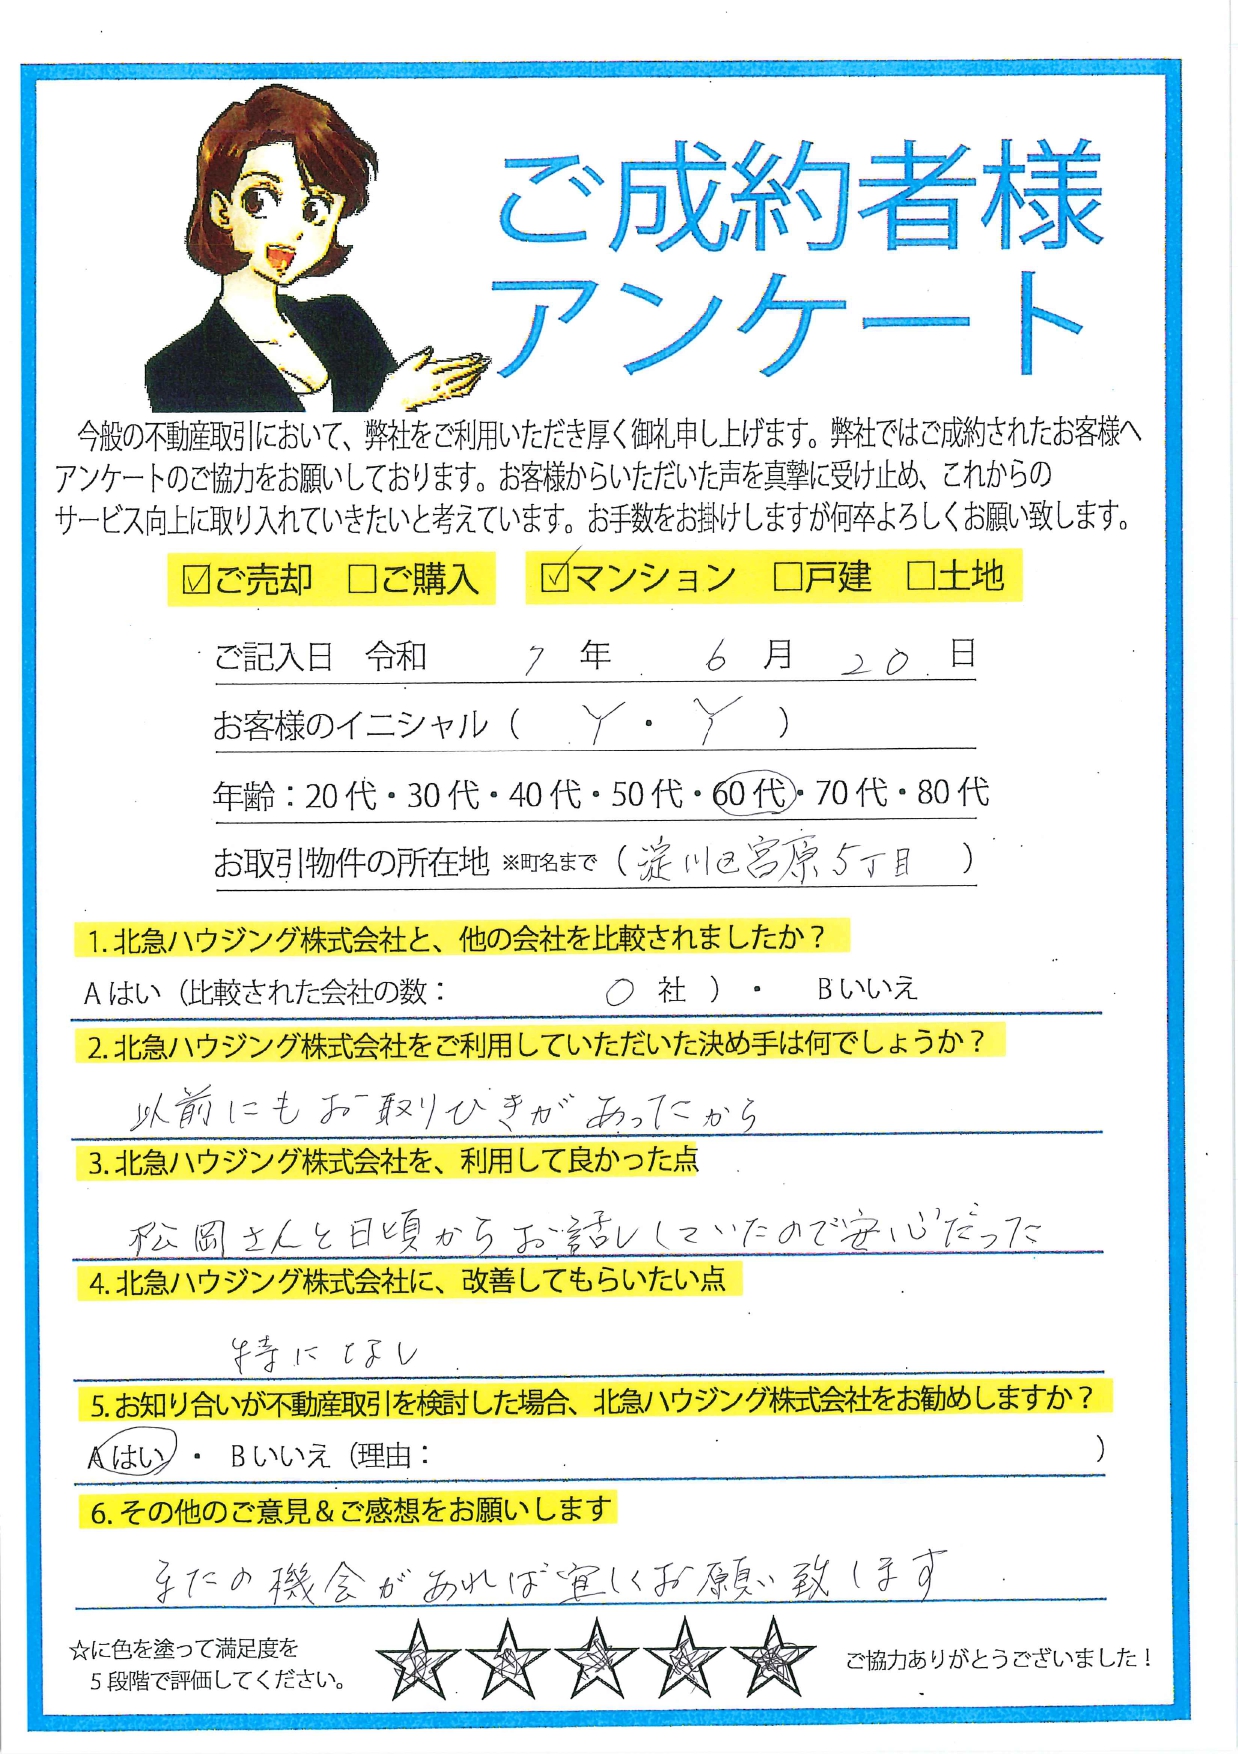 ご成約者様
アンケート
今般の不動産取引において、弊社をご利用いただき厚く御礼申し上げます。弊社ではご成約されたお客様へ
アンケートのご協力をお願いしております。お客様からいただいた声を真摯に受け止め、これからの
サービス向上に取り入れていきたいと考えています。お手数をお掛けしますが何卒よろしくお願い致します。
☑ご売却 □ご購入 ☑マンション □戸建 □土地
ご記入日 令和 7 年 6 月 20 日
お客様のイニシャル（ Y・Y ）
年齢：20代・30代・40代・50代・60代・70代・80代
お取引物件の所在地 ※町名まで（淀川区宮原5丁目 ）
1.北急ハウジング株式会社と、他の会社を比較されましたか？
Aはい（比較された会社の数： 0 社 ）・ Bいいえ
2.北急ハウジング株式会社をご利用していただいた決め手は何でしょうか？
以前にもお取りひきがあったから
3.北急ハウジング株式会社を、利用して良かった点
松岡さんと日頃からお話ししていたので安心だった
4.北急ハウジング株式会社に、改善してもらいたい点
特になし
5.お知り合いが不動産取引を検討した場合、北急ハウジング株式会社をお勧めしますか？
Aはい ・ Bいいえ（理由： ）
6.その他のご意見＆ご感想をお願いします
またの機会があれば宜しくお願い致します
☆に色を塗って満足度を
5段階で評価してください。
ご協力ありがとうございました！